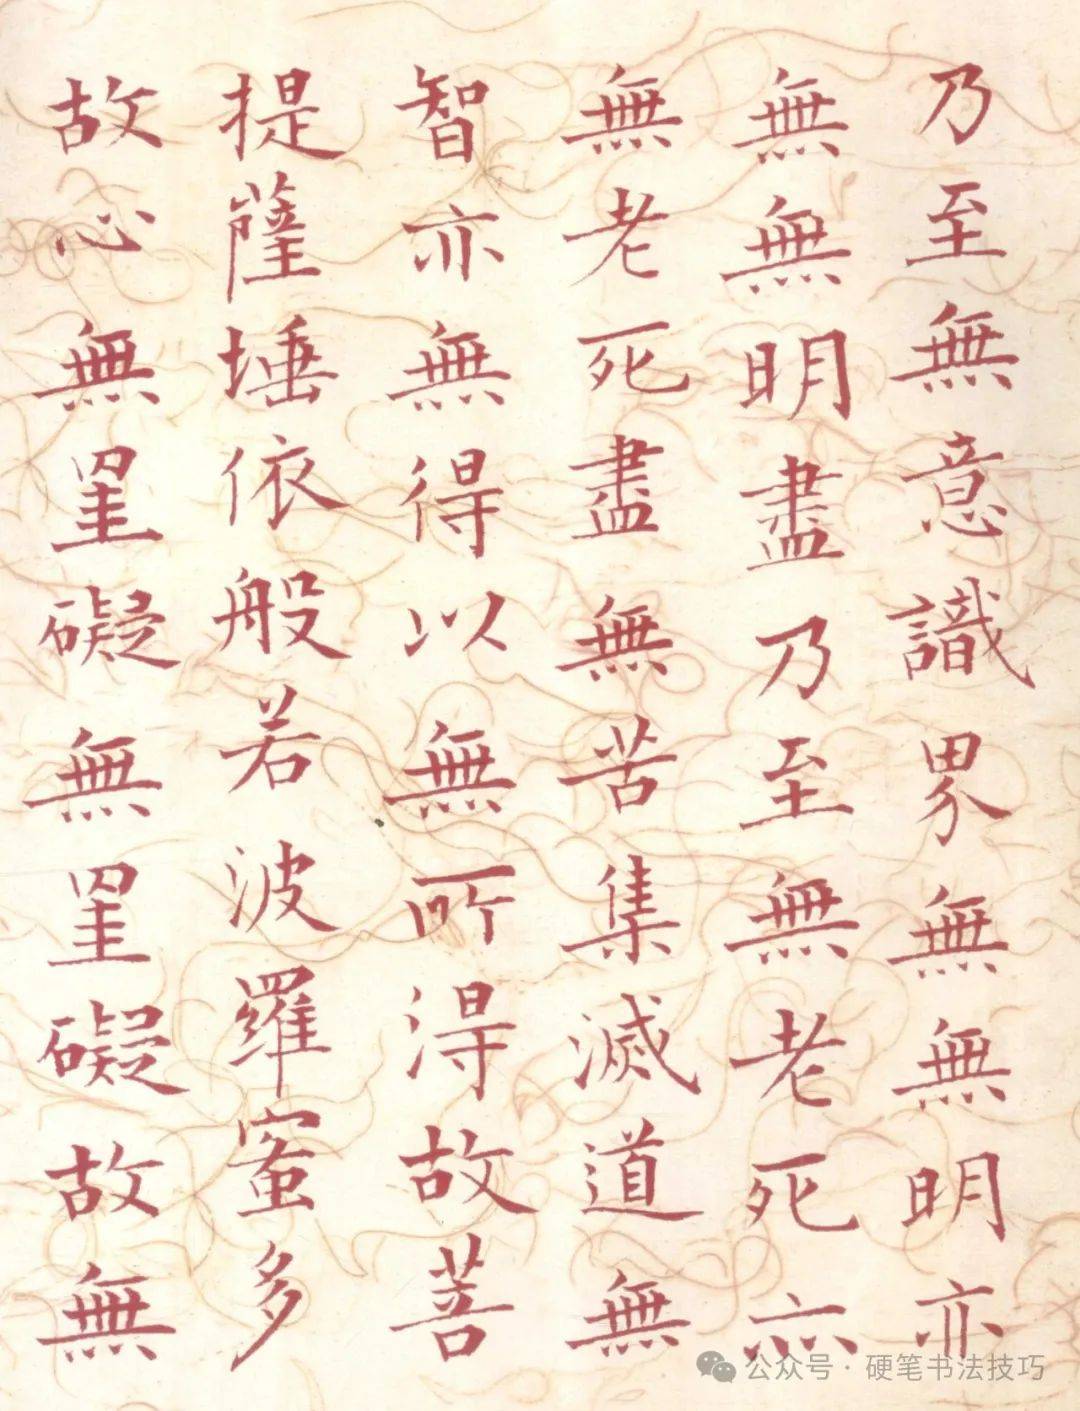 乃至無意識界無無明亦
無無明盡乃至無老死亦
無老死盡無苦集滅道無
智亦無得以無所得故菩
提薩埵依般若波羅蜜多
故心無罣礙無罣礙故無
公众号·硬笔书法技巧